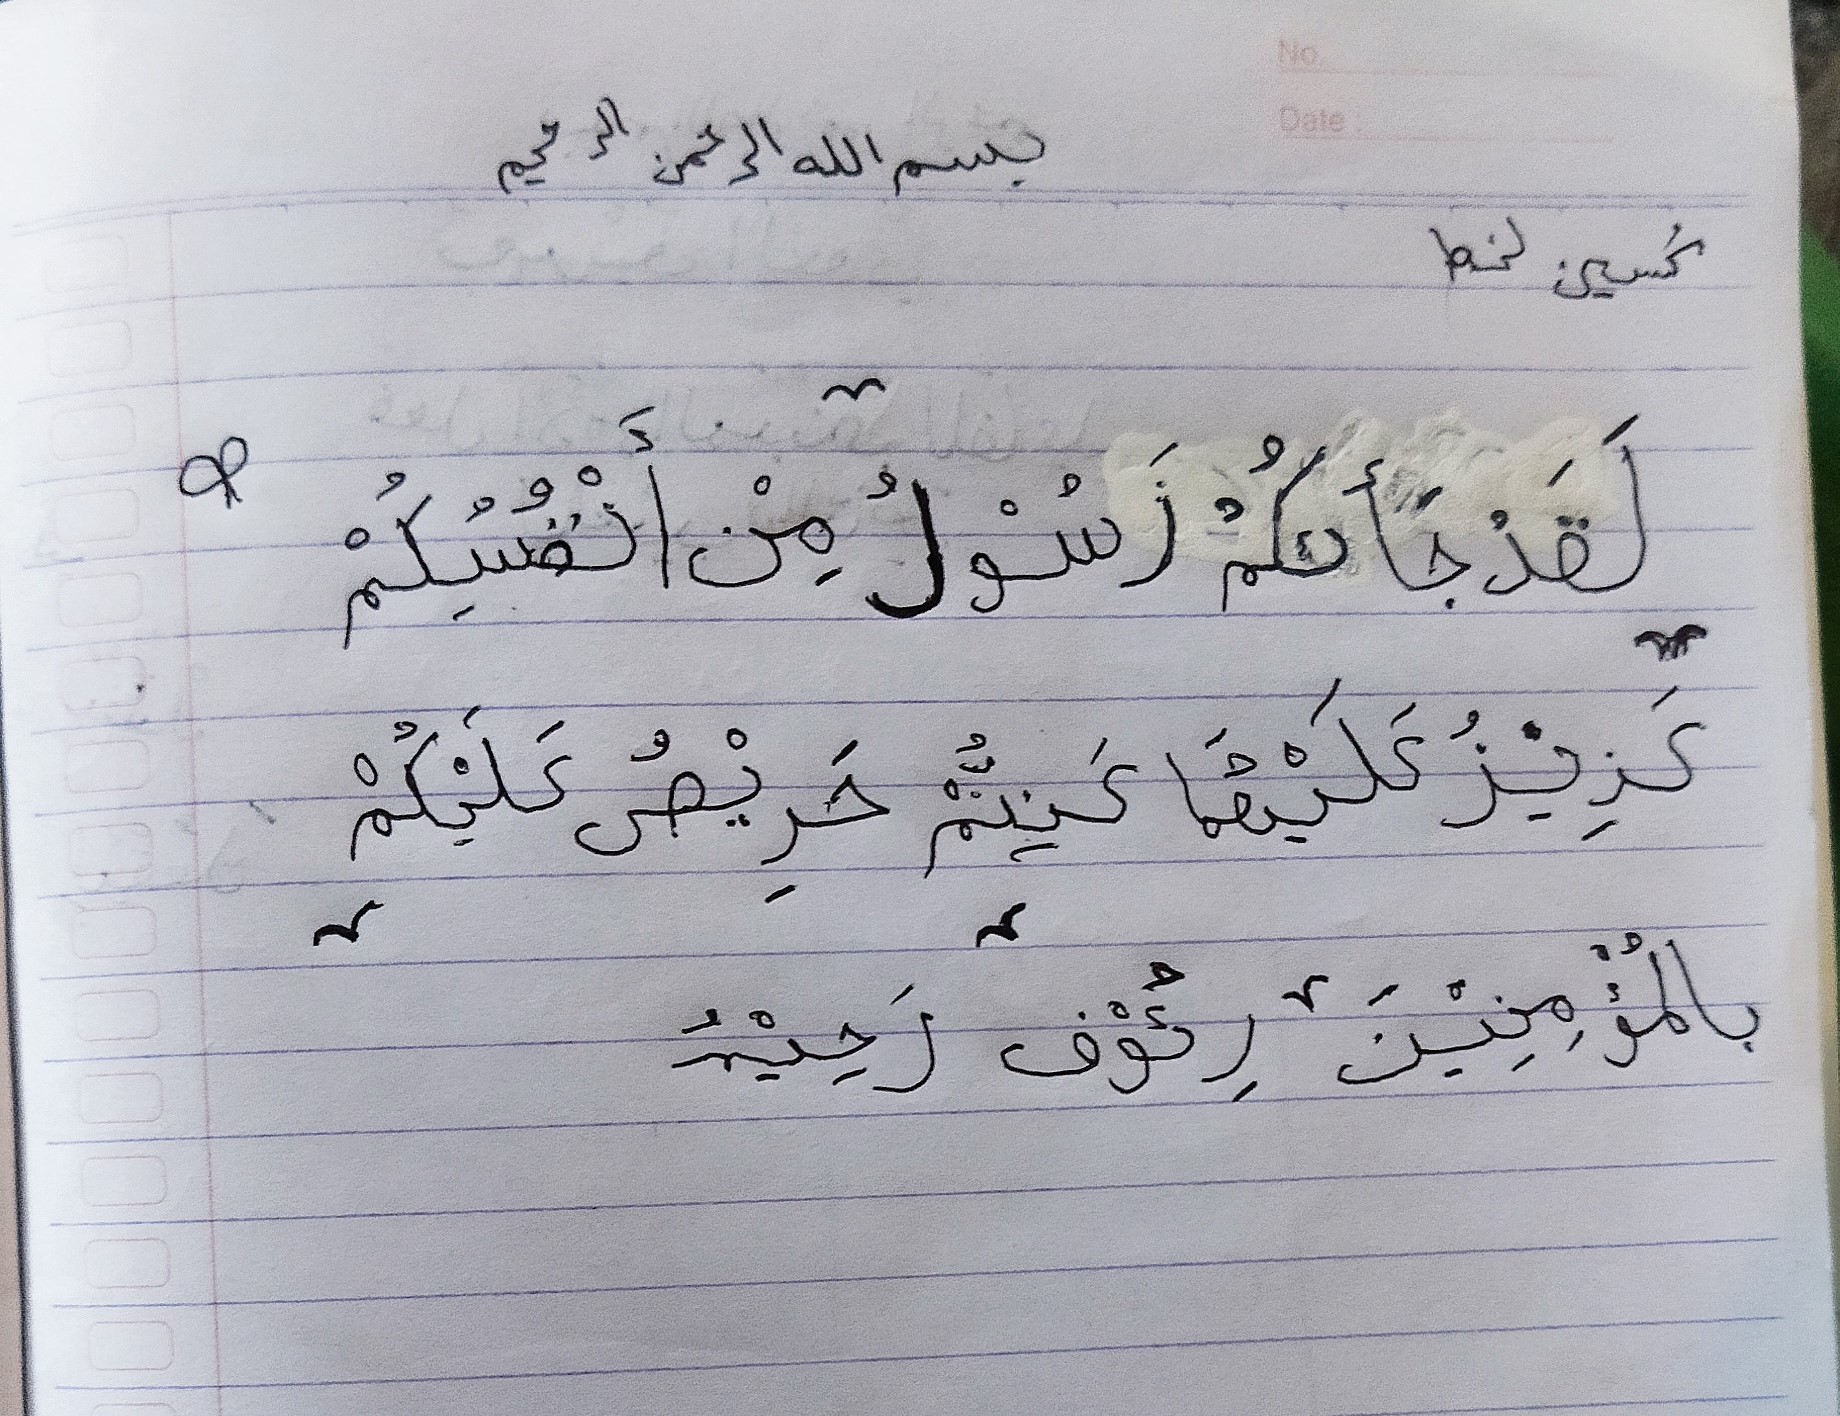 No.
Date :
بسم الله الرحمن الرحيم
تحسين لخط
لَقَدْ جَأَكُمْ رَسُوْلُ مِنْ أَنْفُسِكُمْ
عَزِيْزُ عَلَيْهِمَا عَنِتُّمْ حَرِيْصُ عَلَيْكُمْ
بالمُؤْمِنِيْنَ رِئُوْف رَحِيْمُ